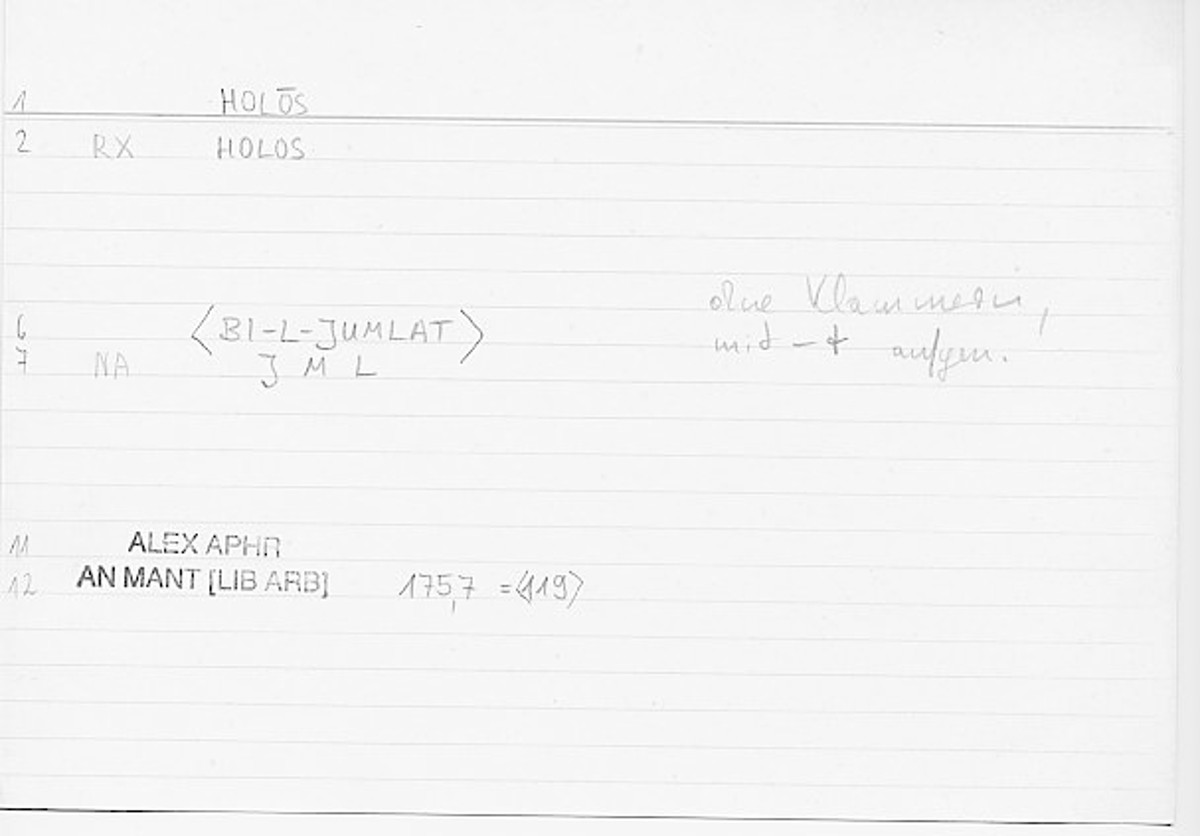 1 HOLŌS
2 RX HOLOS
ohne Klammern,
6 〈BI-L-JUMLAT〉 mit -t aufgen.
7 NA J M L
11 ALEX APHR
12 AN MANT [LIB ARB] 175,7 =〈119〉